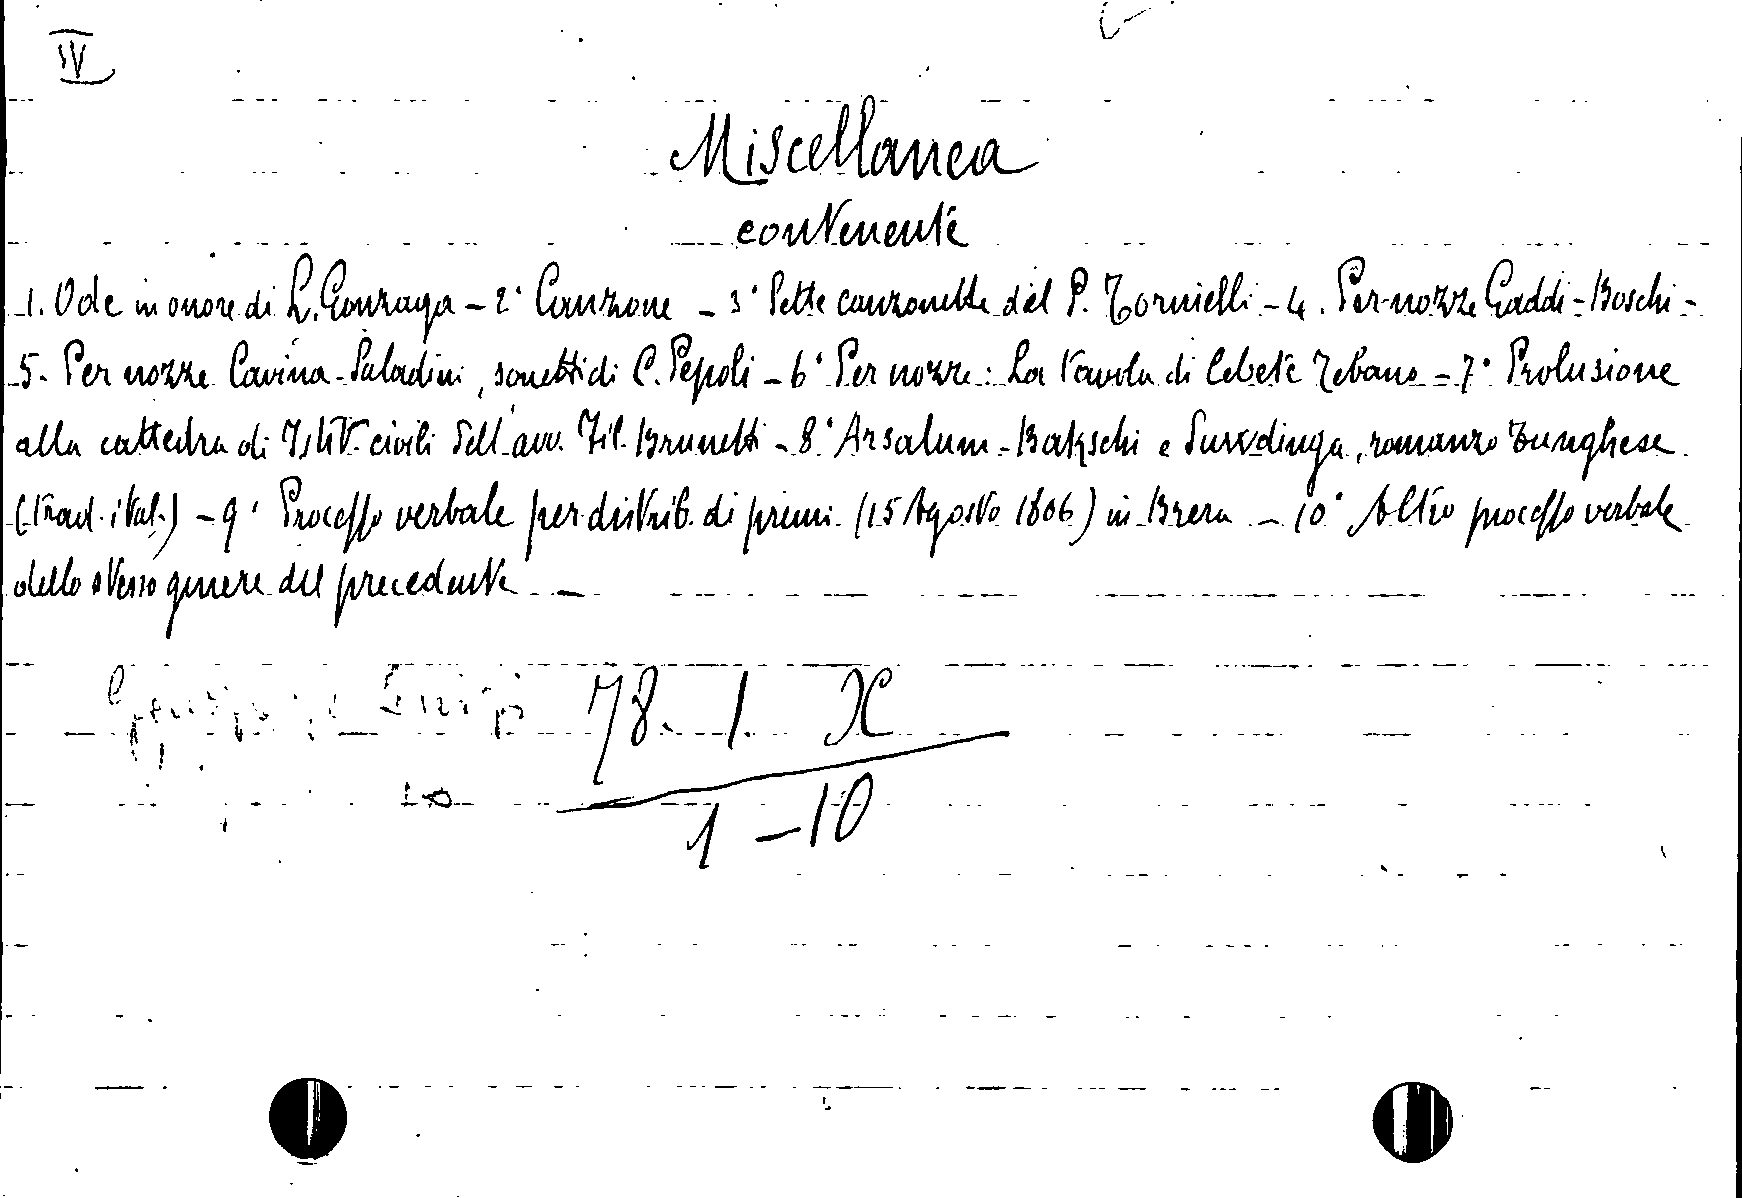 IV
Miscellanea
contenente
1. Ode in onore di L. Gonzaga - 2° Canzone - 3° Sette canzonette del P. Tornielli - 4. Per nozze Gaddi-Boschi -
5. Per nozze Cavina-Saladini, sonetti di C. Pepoli - 6° Per nozze: La tavola di Cebete Tebano - 7° Prolusione
alla cattedra di Istit. civili dell'avv. Fil. Brunetti - 8° Arsalum-Bakschi e Suredinga, romanzo tunghese
(trad. ital.) - 9° Processo verbale per distrib. di premi (15 Agosto 1806) in Brera - 10° Altro processo verbale
dello stesso genere del precedente -
78. 1. X
1-10